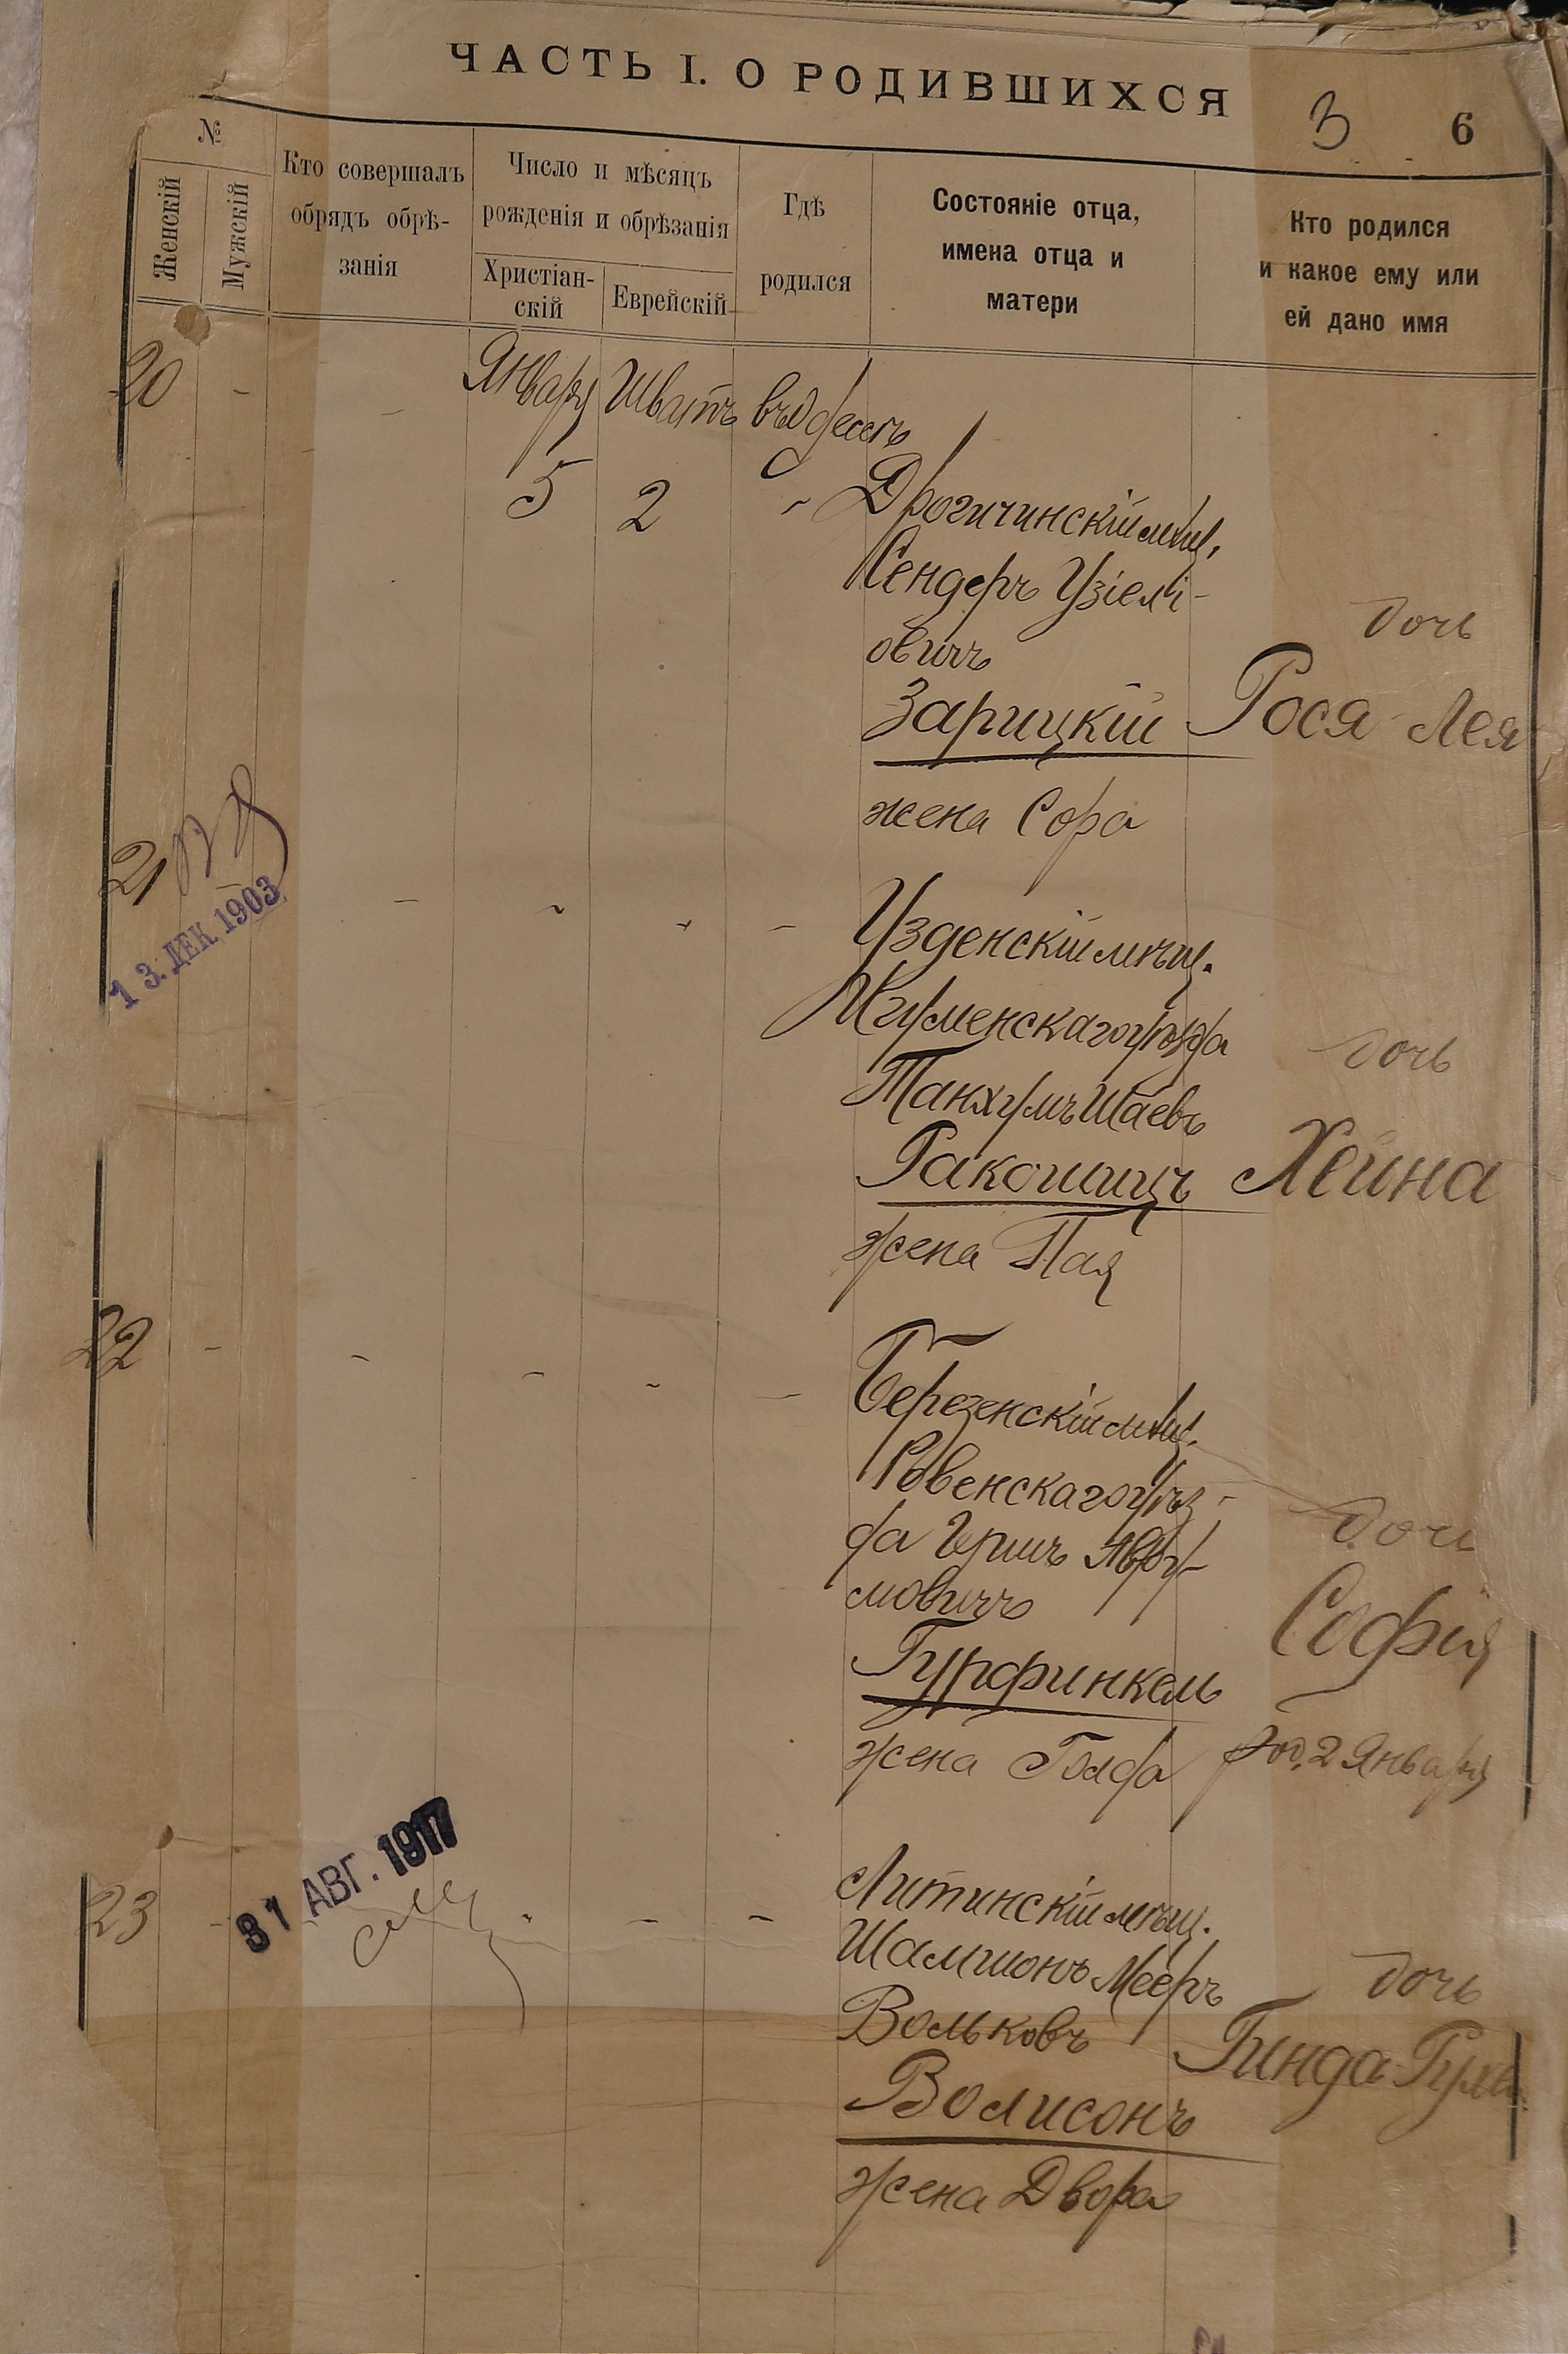 ЧАСТЬ I. О РОДИВШИХСЯ
3 6
№
Женскій
Мужскій
Кто совершалъ
обрядъ обрѣ-
занія
Число и мѣсяцъ
рожденія и обрѣзанія
Христіан-
скій
Еврейскій
Гдѣ
родился
Состояніе отца,
имена отца и
матери
Кто родился
и какое ему или
ей дано имя
20 -
-
Января
5
Шватъ
2
въ Одессѣ
Дрогичинскій мѣщ.
Сендеръ Узіелі-
овичъ
Зарицкій
жена Сора
дочь
Рося-Лея
21
13. ДЕК. 1903
Узденскій мѣщ.
Игуменскаго уѣзда
Танхумъ Шаевъ
Ракошицъ
жена Пая
дочь
Хейна
22
Березенскій мѣщ.
Ровенскаго уѣз-
да Гершъ Авру-
мовичъ
Гурфинкель
жена Голда
дочь
Софія
род. 2 Января
23
31 АВГ. 1917
Литинскій мѣщ.
Шамшонъ Мееръ
Вольковъ
Волисонъ
жена Двора
дочь
Гинда